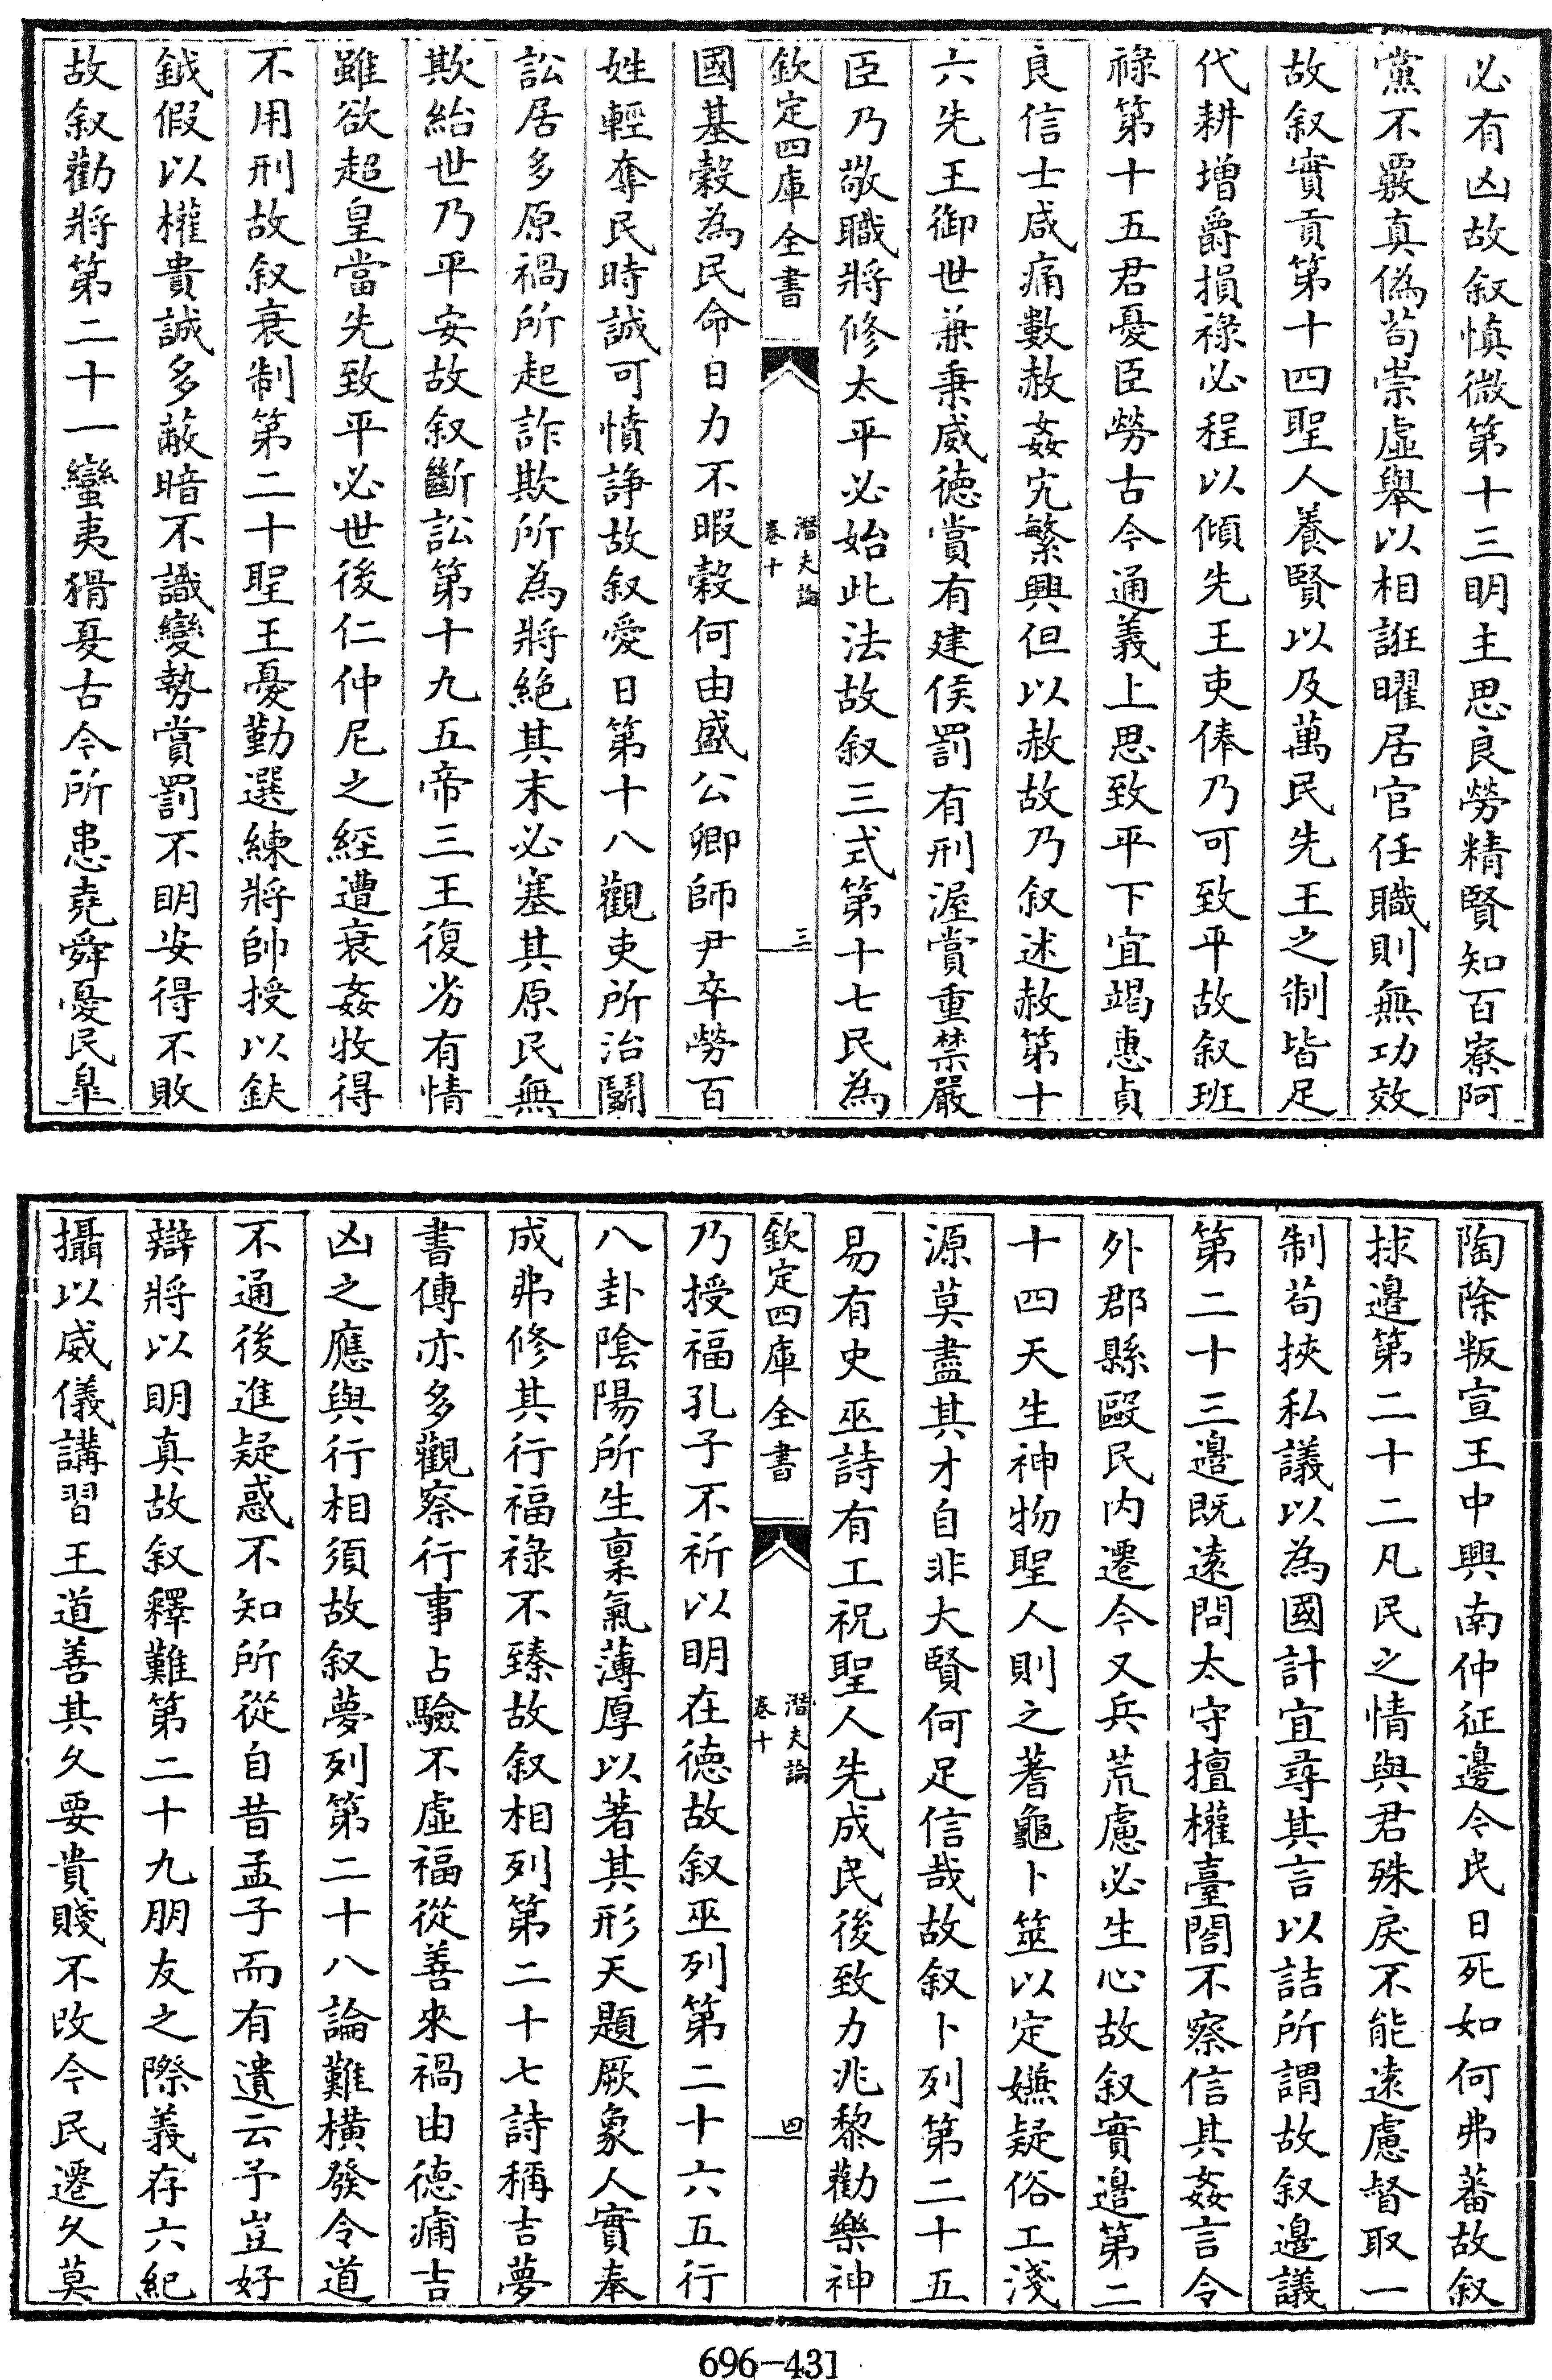 必有凶故叙慎微第十三明主思良勞精賢知百寮阿
黨不覈真偽茍崇虛舉以相誑曜居官任職則無功效
故叙實貢第十四聖人養賢以及萬民先王之制皆足
代耕增爵損祿必程以傾先王吏俸乃可致平故叙班
祿第十五君憂臣勞古今通義上思致平下宜竭惠貞
良信士咸痛數赦姦宄繁興但以赦故乃叙述赦第十
六先王御世兼秉威德賞有建侯罰有刑渥賞重禁嚴
臣乃敬職將修太平必始此法故叙三式第十七民為
欽定四庫全書
潛夫論
卷十
三
國基穀為民命日力不暇穀何由盛公卿師尹卒勞百
姓輕奪民時誠可憤諍故叙愛日第十八觀吏所治鬭
訟居多原禍所起詐欺所為將絕其末必塞其原民無
欺紿世乃平安故叙斷訟第十九五帝三王復劣有情
雖欲超皇當先致平必世後仁仲尼之經遭衰姦牧得
不用刑故叙衰制第二十聖王憂勤選練將帥授以鈇
鉞假以權貴誠多蔽暗不識變勢賞罰不明安得不敗
故叙勸將第二十一蠻夷猾夏古今所患堯舜憂民臯
陶除叛宣王中興南仲征邊今民日死如何弗蕃故叙
捄邊第二十二凡民之情與君殊戾不能遠慮督取一
制茍挾私議以為國計宜尋其言以詰所謂故叙邊議
第二十三邊既遠問太守擅權臺閤不察信其姦言令
外郡縣毆民内遷今又兵荒慮必生心故叙實邊第二
十四天生神物聖人則之蓍龜卜筮以定嫌疑俗工淺
源莫盡其才自非大賢何足信哉故叙卜列第二十五
易有史巫詩有工祝聖人先成民後致力兆黎勸樂神
欽定四庫全書
潛夫論
卷十
四
乃授福孔子不祈以明在德故叙巫列第二十六五行
八卦陰陽所生稟氣薄厚以著其形天題厥象人實奉
成弗修其行福祿不臻故叙相列第二十七詩稱吉夢
書傳亦多觀察行事占驗不虛福從善來禍由德痡吉
凶之應與行相須故叙夢列第二十八論難橫發令道
不通後進疑惑不知所從自昔孟子而有遺云予豈好
辯將以明真故叙釋難第二十九朋友之際義存六紀
攝以威儀講習王道善其久要貴賤不改今民遷久莫
696-431